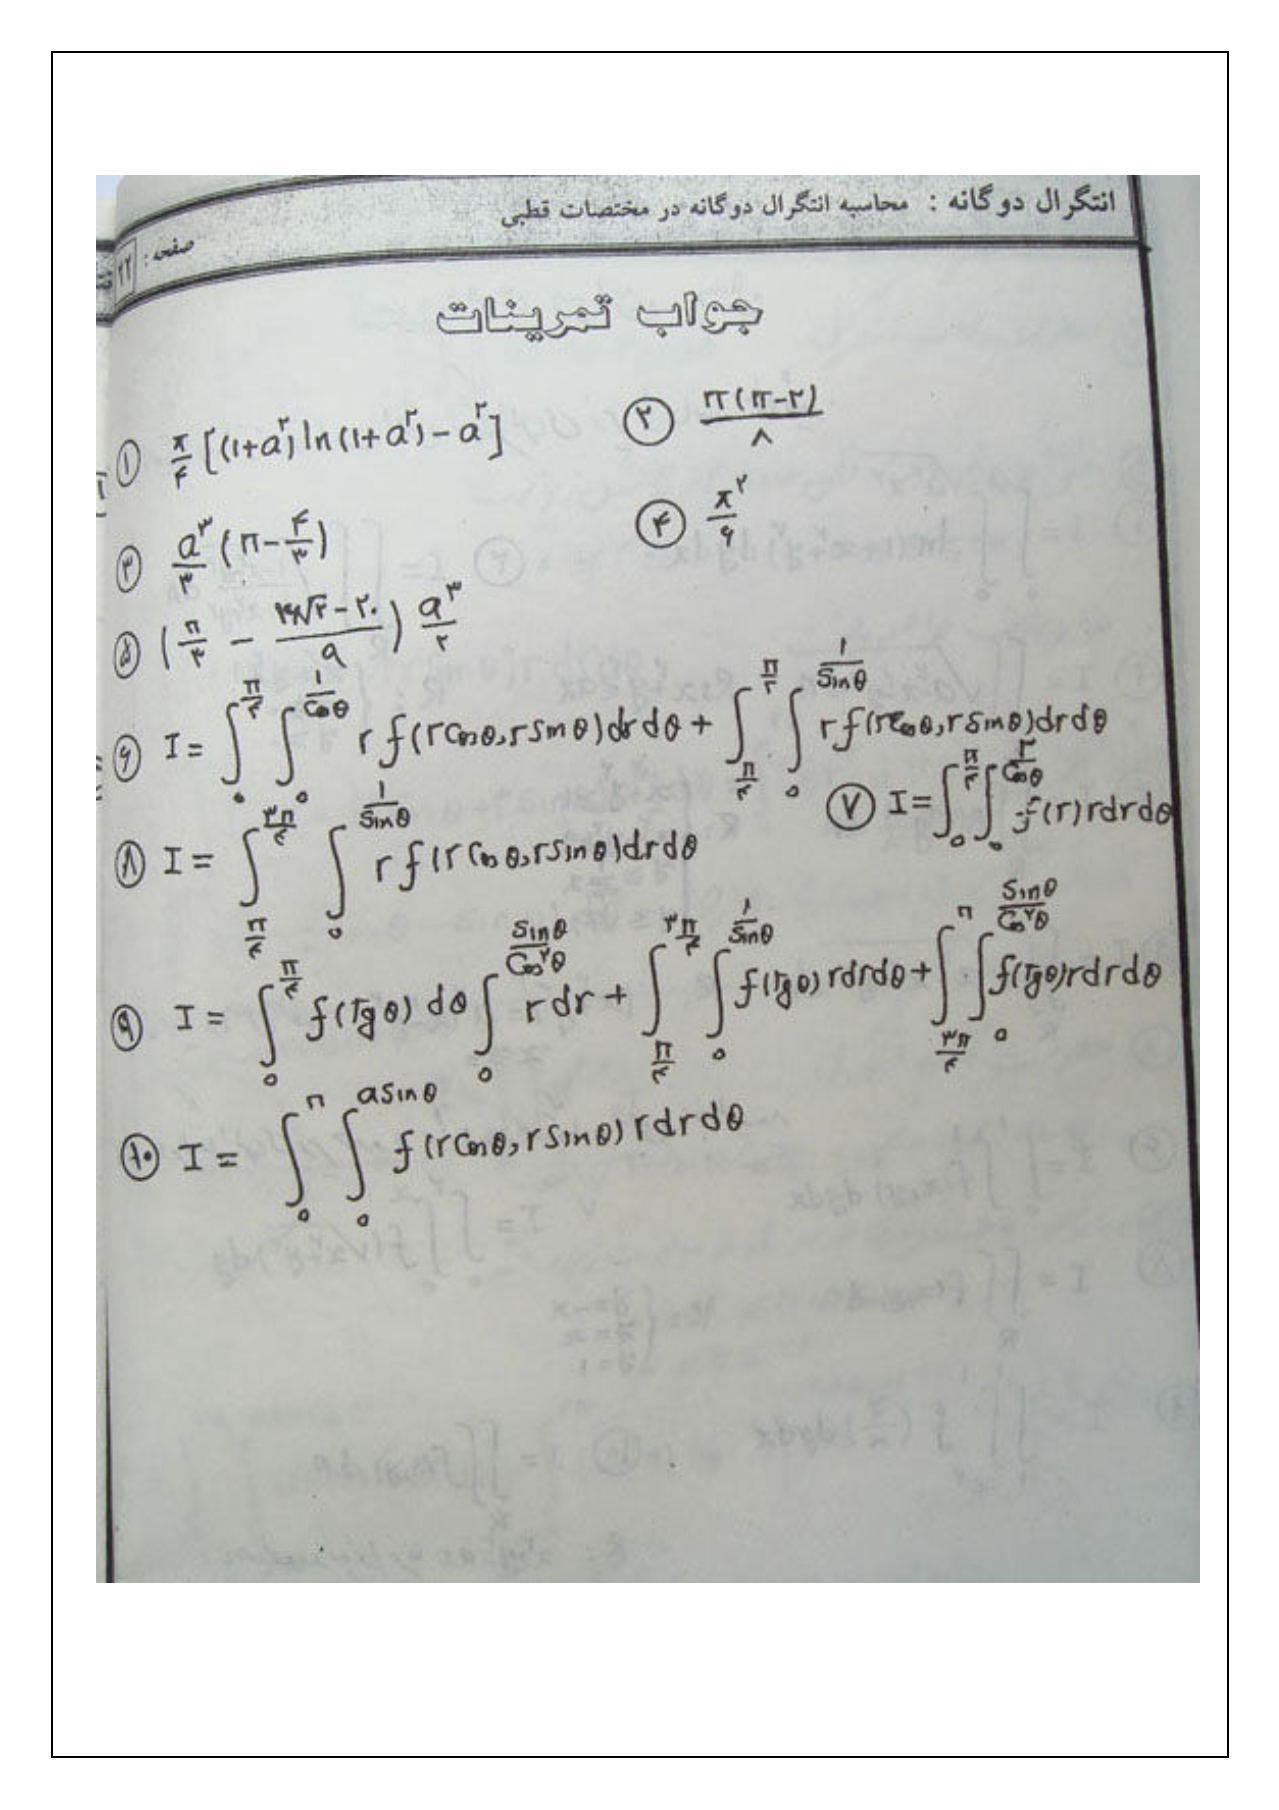 انتگرال دوگانه : محاسبه انتگرال دوگانه در مختصات قطبی
صفحه : ۲۲
جواب تمرینات
① π/۴ [(1+a²) ln(1+a²) − a²]
② π(π−۲)/۸
③ a³/۳ (π − ۴/۳)
④ π²/۶
⑤ (π/۳ − (۱۶√۲ − ۲۰)/۹) a³/۲
⑥ I = ∫₀^{π/۴} ∫₀^{1/Cosθ} r f(rCosθ, rSinθ) dr dθ + ∫_{π/۴}^{π/۲} ∫₀^{1/Sinθ} r f(rCosθ, rSinθ) dr dθ
⑦ I = ∫₀^{π/۴} ∫₀^{۲/Cosθ} f(r) r dr dθ
⑧ I = ∫_{π/۴}^{۳π/۴} ∫₀^{1/Sinθ} r f(rCosθ, rSinθ) dr dθ
⑨ I = ∫₀^{π/۴} f(Tgθ) dθ ∫₀^{Sinθ/Cos²θ} r dr + ∫_{π/۴}^{۳π/۴} ∫₀^{1/Sinθ} f(Tgθ) r dr dθ + ∫_{۳π/۴}^{π} ∫₀^{Sinθ/Cos²θ} f(Tgθ) r dr dθ
⑩ I = ∫₀^{π} ∫₀^{aSinθ} f(rCosθ, rSinθ) r dr dθ